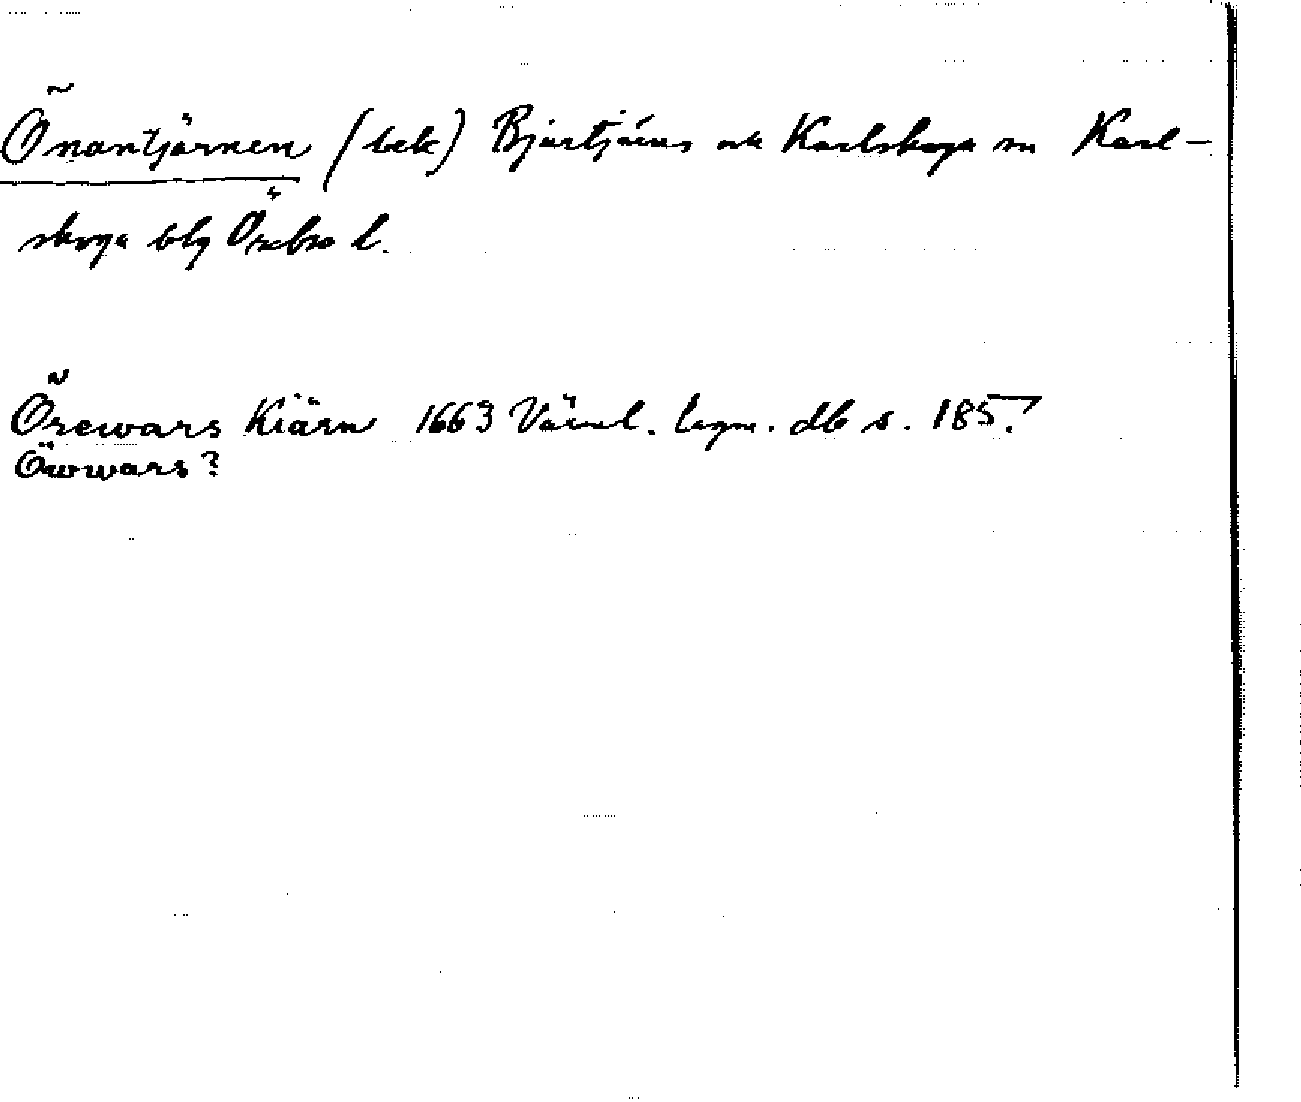 Önantjärnen (bek) Bjurtjärns ock Karlskoga sn Karl-
skoga blg Örebro l.
Örewars Kiärn 1663 Värml. lagm. db s. 185.
Öwwars?